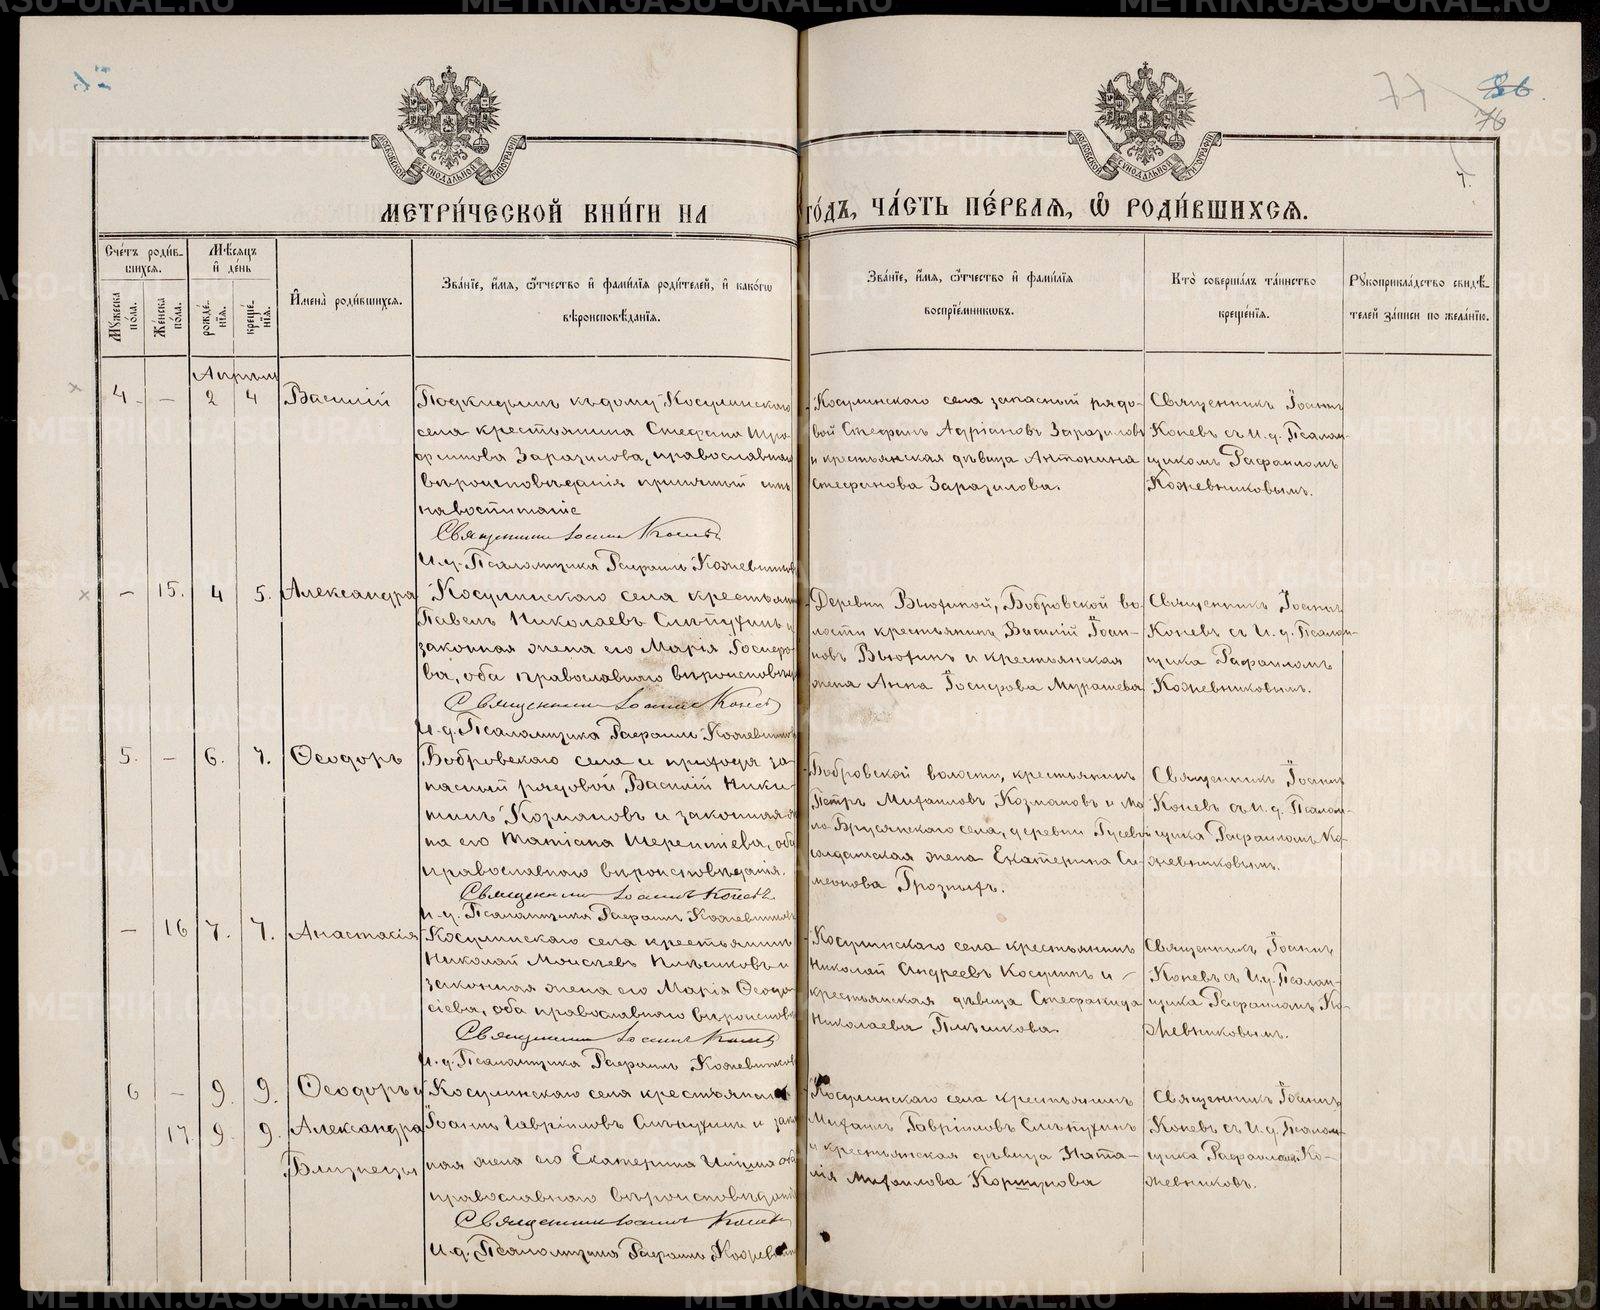 МОСКОВСКОЙ СѴНОДАЛЬНОЙ ТИПОГРАФІИ
МОСКОВСКОЙ СѴНОДАЛЬНОЙ ТИПОГРАФІИ
77 86
76
7.
МЕТРИ́ЧЕСКОЙ КНИ́ГИ НА ГО́ДЪ, ЧА́СТЬ ПЕ́РВАЯ, Ѡ РОДИ́ВШИХСЯ.
Сче́тъ роди́в-
шихся.
Мѣ́сяцъ
и де́нь
Мꙋ́жеска по́ла.
Же́нска по́ла.
рожде́-нїя.
креще́-нїя.
Имена̀ роди́вшихся.
Зва́нїе, и́мя, ѻ҆́тчество и҆ фами́лїя роди́телей, и҆ како́гѡ
вѣроисповѣ́данїя.
Зва́нїе, и́мя, ѻ҆́тчество и҆ фами́лїя
воспрїе́мникѡвъ.
Кто̀ соверша́лъ та́инство
креще́нїя.
Рꙋкоприкла́дство свидѣ́-
телей за́писи по жела́нїю.
Апрѣль
4 - — 2 4 Василій
Подкидышъ къ дому Косулинскаго
села крестьянина Стефана
Заразилова, православнаго
вѣроисповѣданія принятый имъ
на воспитаніе
Священникъ Іоаннъ Коневъ
И.д. Псаломщика Рафаилъ Кожевниковъ
Косулинскаго села запасный рядо-
вой Стефанъ Адріановъ Заразиловъ
и крестьянская дѣвица Антонина
Стефанова Заразилова.
Священникъ Іоаннъ
Коневъ съ И.д. Псалом-
щикомъ Рафаиломъ
Кожевниковымъ.
— 15. 4 5. Александра
Косулинскаго села крестьянинъ
Павелъ Николаевъ Слѣпухинъ и
законная жена его Марія Іосифо-
ва, оба православнаго вѣроисповѣд
Священникъ Іоаннъ Коневъ
И.д. Псаломщика Рафаилъ Кожевниковъ
Деревни Вьюхиной, Бобровской во-
лости крестьянинъ Василій Іоан-
новъ Вьюхинъ и крестьянская
жена Анна Іосифова Мурашева
Священникъ Іоаннъ
Коневъ съ И.д. Псалом-
щика Рафаиломъ
Кожевниковымъ.
5. — 6. 7. Ѳеодоръ
Бобровскаго села и прихода за-
пасный рядовой Василій Ники-
тинъ Козмановъ и законная же-
на его Татіана Терентіева, оба
православнаго вѣроисповѣданія.
Священникъ Іоаннъ Коневъ
И.д. Псаломщика Рафаилъ Кожевниковъ
Бобровской волости, крестьянинъ
Петръ Михаиловъ Козмановъ и Ма-
ло-Брусянскаго села, деревни Гусевой
солдатская жена Екатерина Си-
меонова Грозныхъ.
Священникъ Іоаннъ
Коневъ съ И.д. Псалом-
щика Рафаиломъ Ко-
жевниковымъ.
— 16 7. 7. Анастасія
Косулинскаго села крестьянинъ
Николай Моисеевъ Плѣшковъ и
законная жена его Марія Ѳеодо-
сіева, оба православнаго вѣроисповѣ
Священникъ Іоаннъ Коневъ
И.д. Псаломщика Рафаилъ Кожевниковъ
Косулинскаго села крестьянинъ
Николай Андреевъ Косулинъ и -
крестьянская дѣвица Стефанида
Николаева Плѣшкова
Священникъ Іоаннъ
Коневъ съ И.д. Псалом-
щика Рафаиломъ Ко-
жевниковымъ.
6 — 9. 9. Ѳеодоръ и
17. 9. 9. Александра
Близнецы
Косулинскаго села крестьянинъ
Іоаннъ Гавріиловъ Слѣпухинъ и закон
ная жена его Екатерина оба
православнаго вѣроисповѣданія
Священникъ Іоаннъ Коневъ
И.д. Псаломщика Рафаилъ Кожевник
Косулинскаго села крестьянинъ
Михаилъ Гавріиловъ Слѣпухинъ
и крестьянская дѣвица Ната-
лія Михаилова Коршунова
Священникъ Іоаннъ
Коневъ съ И.д. Псалом-
щика Рафаиломъ Ко-
жевниковъ.
METRIKI.GASO-URAL.RU